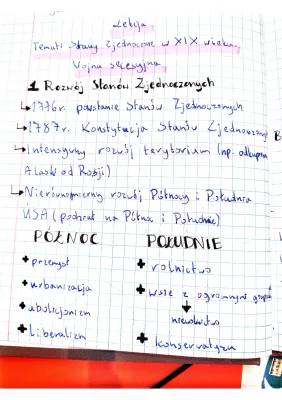 Lekcja
Temat: Stany Zjednoczone w XIX wieku.
Wojna secesyjna
1 Rozwój Stanów Zjednoczonych
↳1776r. powstanie Stanów Zjednoczonych
↳1787r. Konstytucja Stanów Zjednoczonych
↳Intensywny rozwój terytorium (np. odkupienie
Alaski od Rosji)
↳Nierównomierny rozwój Północy i Południa
USA (podział na Północ i Południe)
PÓŁNOC POŁUDNIE
+ przemysł + rolnictwo
+ urbanizacja + wsie z ogromnymi
+ abolicjonizm niewolnictwo
+ liberalizm + konserwatyzm